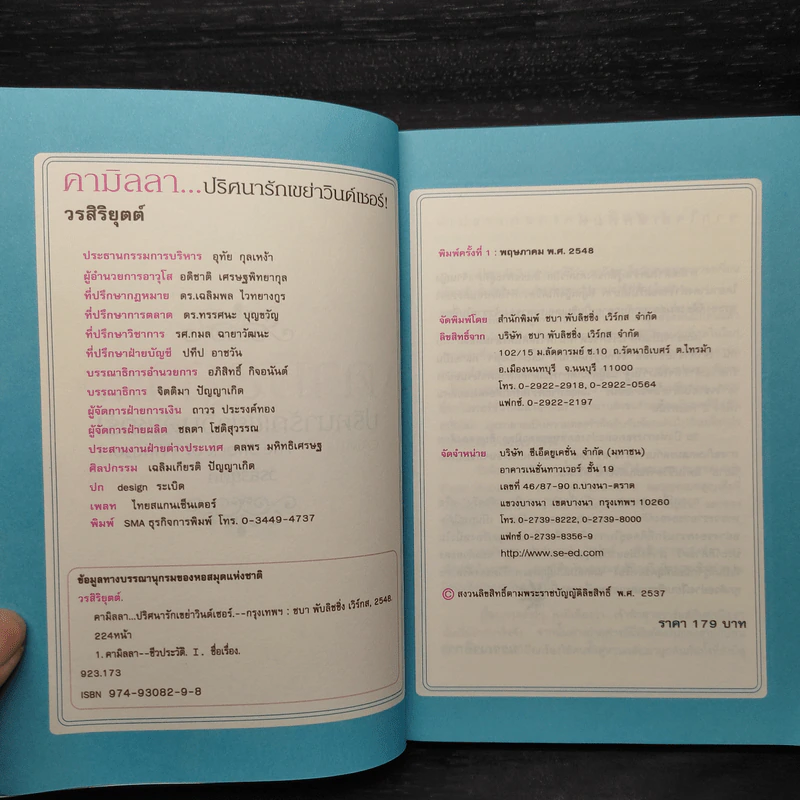 คามิลลา...ปริศนารักเขย่าวินด์เซอร์!
วรสิริยุตต์
ประธานกรรมการบริหาร อุทัย กุลเหง้า
ผู้อำนวยการอาวุโส อดิชาติ เศรษฐพิทยากุล
ที่ปรึกษากฎหมาย ดร.เฉลิมพล ไวทยางกูร
ที่ปรึกษาการตลาด ดร.ทรรศนะ บุญขวัญ
ที่ปรึกษาวิชาการ รศ.กมล ฉายาวัฒนะ
ที่ปรึกษาฝ่ายบัญชี ปทีป อาชวัน
บรรณาธิการอำนวยการ อภิสิทธิ์ กิจอนันต์
บรรณาธิการ จิตติมา ปัญญาเกิด
ผู้จัดการฝ่ายการเงิน ถาวร ประรงค์ทอง
ผู้จัดการฝ่ายผลิต ชลดา โชติสุวรรณ
ประสานงานฝ่ายต่างประเทศ ดลพร มหิทธิเศรษฐ
ศิลปกรรม เฉลิมเกียรติ ปัญญาเกิด
ปก design ระเบิด
เพลท ไทยสแกนเซ็นเตอร์
พิมพ์ SMA ธุรกิจการพิมพ์ โทร. 0-3449-4737
ข้อมูลทางบรรณานุกรมของหอสมุดแห่งชาติ
วรสิริยุตต์.
คามิลลา...ปริศนารักเขย่าวินด์เซอร์.--กรุงเทพฯ : ชบา พับลิชชิ่ง เวิร์กส, 2548.
224หน้า
1. คามิลลา--ชีวประวัติ. I. ชื่อเรื่อง.
923.173
ISBN 974-93082-9-8
พิมพ์ครั้งที่ 1 : พฤษภาคม พ.ศ. 2548
จัดพิมพ์โดย สำนักพิมพ์ ชบา พับลิชชิ่ง เวิร์กส จำกัด
ลิขสิทธิ์จาก บริษัท ชบา พับลิชชิ่ง เวิร์กส จำกัด
102/15 ม.ลัดดารมย์ ซ.10 ถ.รัตนาธิเบศร์ ต.ไทรม้า
อ.เมืองนนทบุรี จ.นนบุรี 11000
โทร. 0-2922-2918, 0-2922-0564
แฟกซ์. 0-2922-2197
จัดจำหน่าย บริษัท ซีเอ็ดยูเคชั่น จำกัด (มหาชน)
อาคารเนชั่นทาวเวอร์ ชั้น 19
เลขที่ 46/87-90 ถ.บางนา-ตราด
แขวงบางนา เขตบางนา กรุงเทพฯ 10260
โทร. 0-2739-8222, 0-2739-8000
แฟกซ์ 0-2739-8356-9
http://www.se-ed.com
© สงวนลิขสิทธิ์ตามพระราชบัญญัติลิขสิทธิ์ พ.ศ. 2537
ราคา 179 บาท